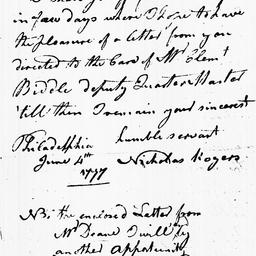 in few days where I hope to have
the pleasure of a letter from you
directed to the Care of Mr Clemt
Biddle deputy Quarter Master
'till then I remain your sincerest
humble servant
Philadelphia
June 4th
Nicholas Rogers
1777
NB: the enclosed Letter from
Mr Deane I will by
another opportunity